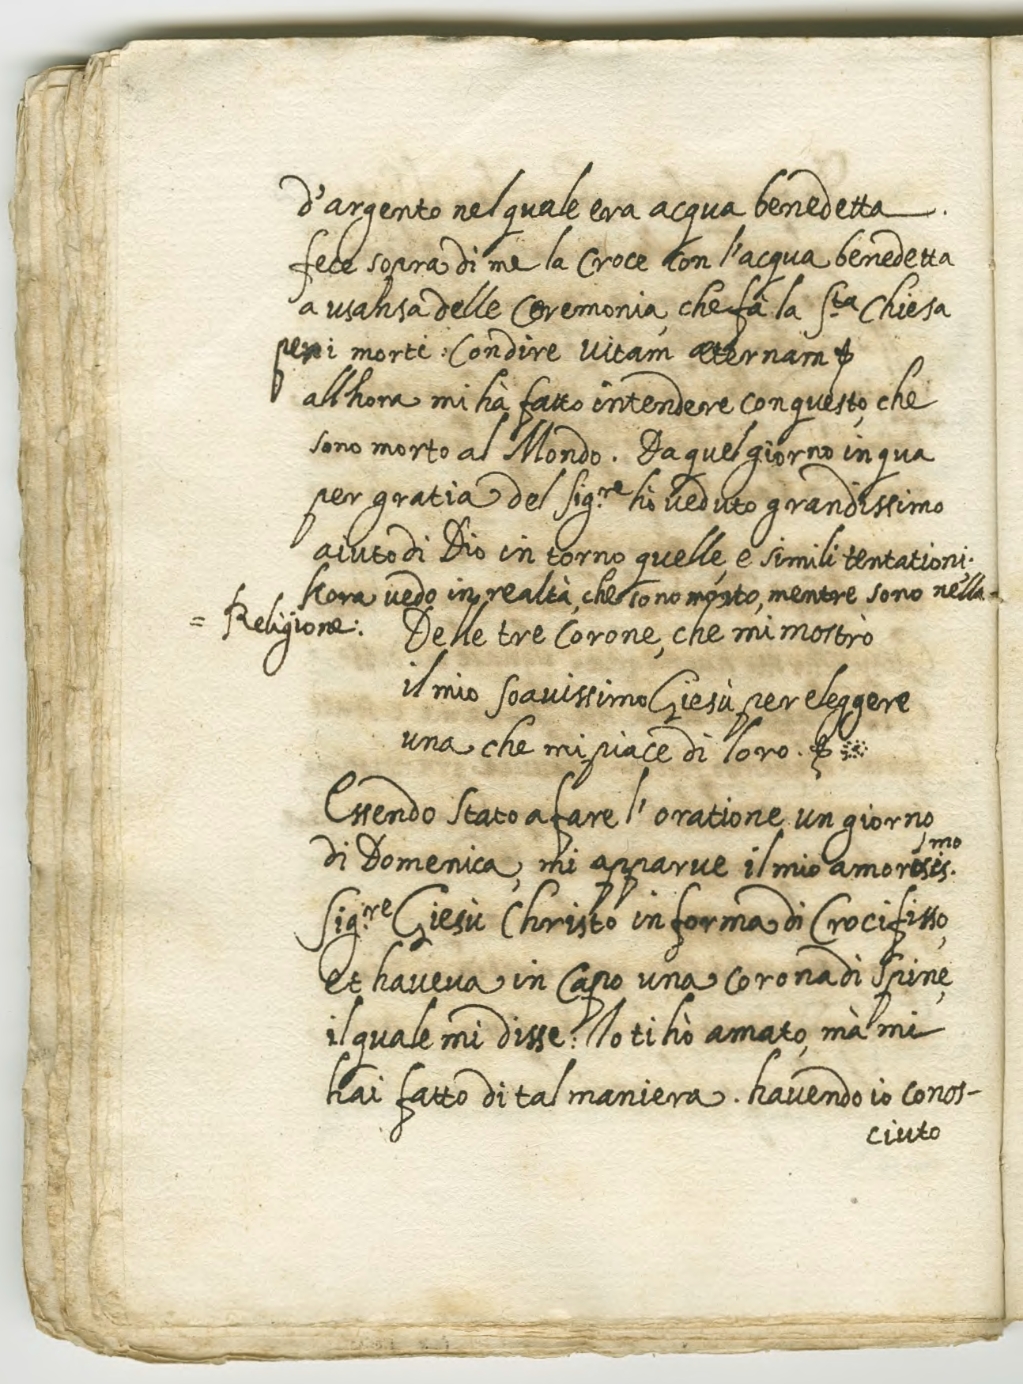 d'argento nel quale era acqua benedetta.
fece sopra di me la Croce con l'acqua benedetta
a usansa delle Ceremonia, che fà la S.ta Chiesa
per i morti: Con dire vitam æternam
all'hora mi hà fatto intendere con questo, che
sono morto al Mondo. Da quel giorno in qua
per gratia del Sig.re hò veduto grandissimo
aiuto di Dio in torno quelle, e simili tentationi.
hora vedo in realtà, che sono morto, mentre sono nella=
=Religione:
Delle tre Corone, che mi mostrò
il mio soavissimo Giesù per eleggere
una che mi piace di loro.
Essendo stato a fare l'oratione un giorno
di Domenica, mi apparve il mio amorosis.mo
Sig.re Giesù Christo in forma di Crocifisso,
et haveva in Capo una corona di spine,
il quale mi disse: Io ti hò amato, mà mi
hai fatto di tal maniera. havendo io conos-
ciuto